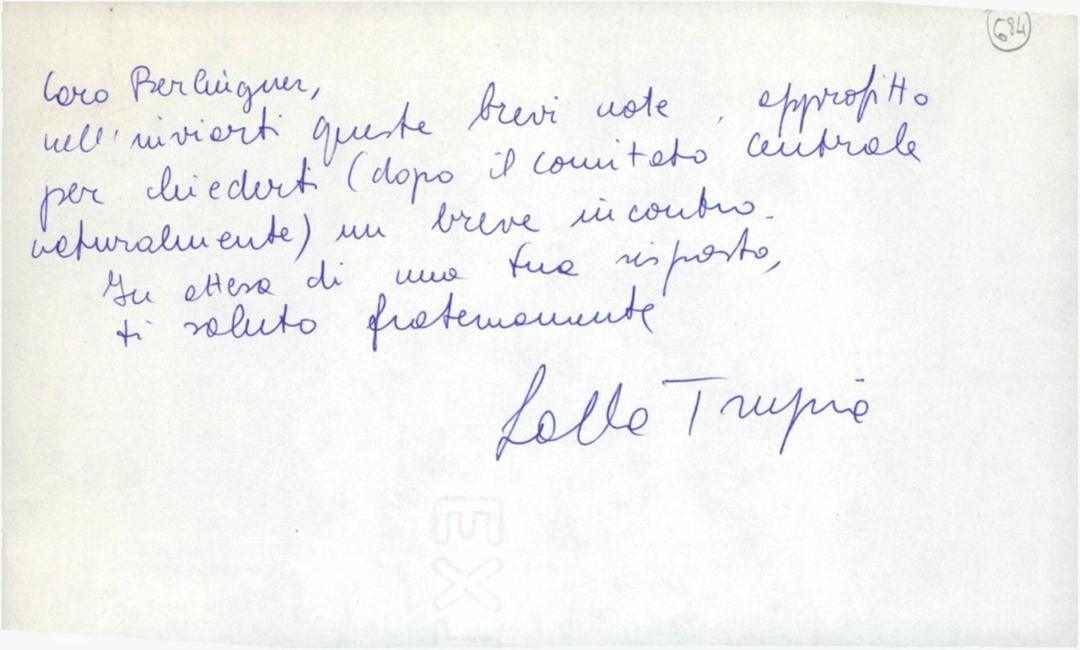 684
Caro Berlinguer,
nell'inviarti queste brevi note, approfitto
per chiederti (dopo il comitato centrale
naturalmente) un breve incontro.
In attesa di una tua risposta,
ti saluto fraternamente
Lalla Trupia
EX